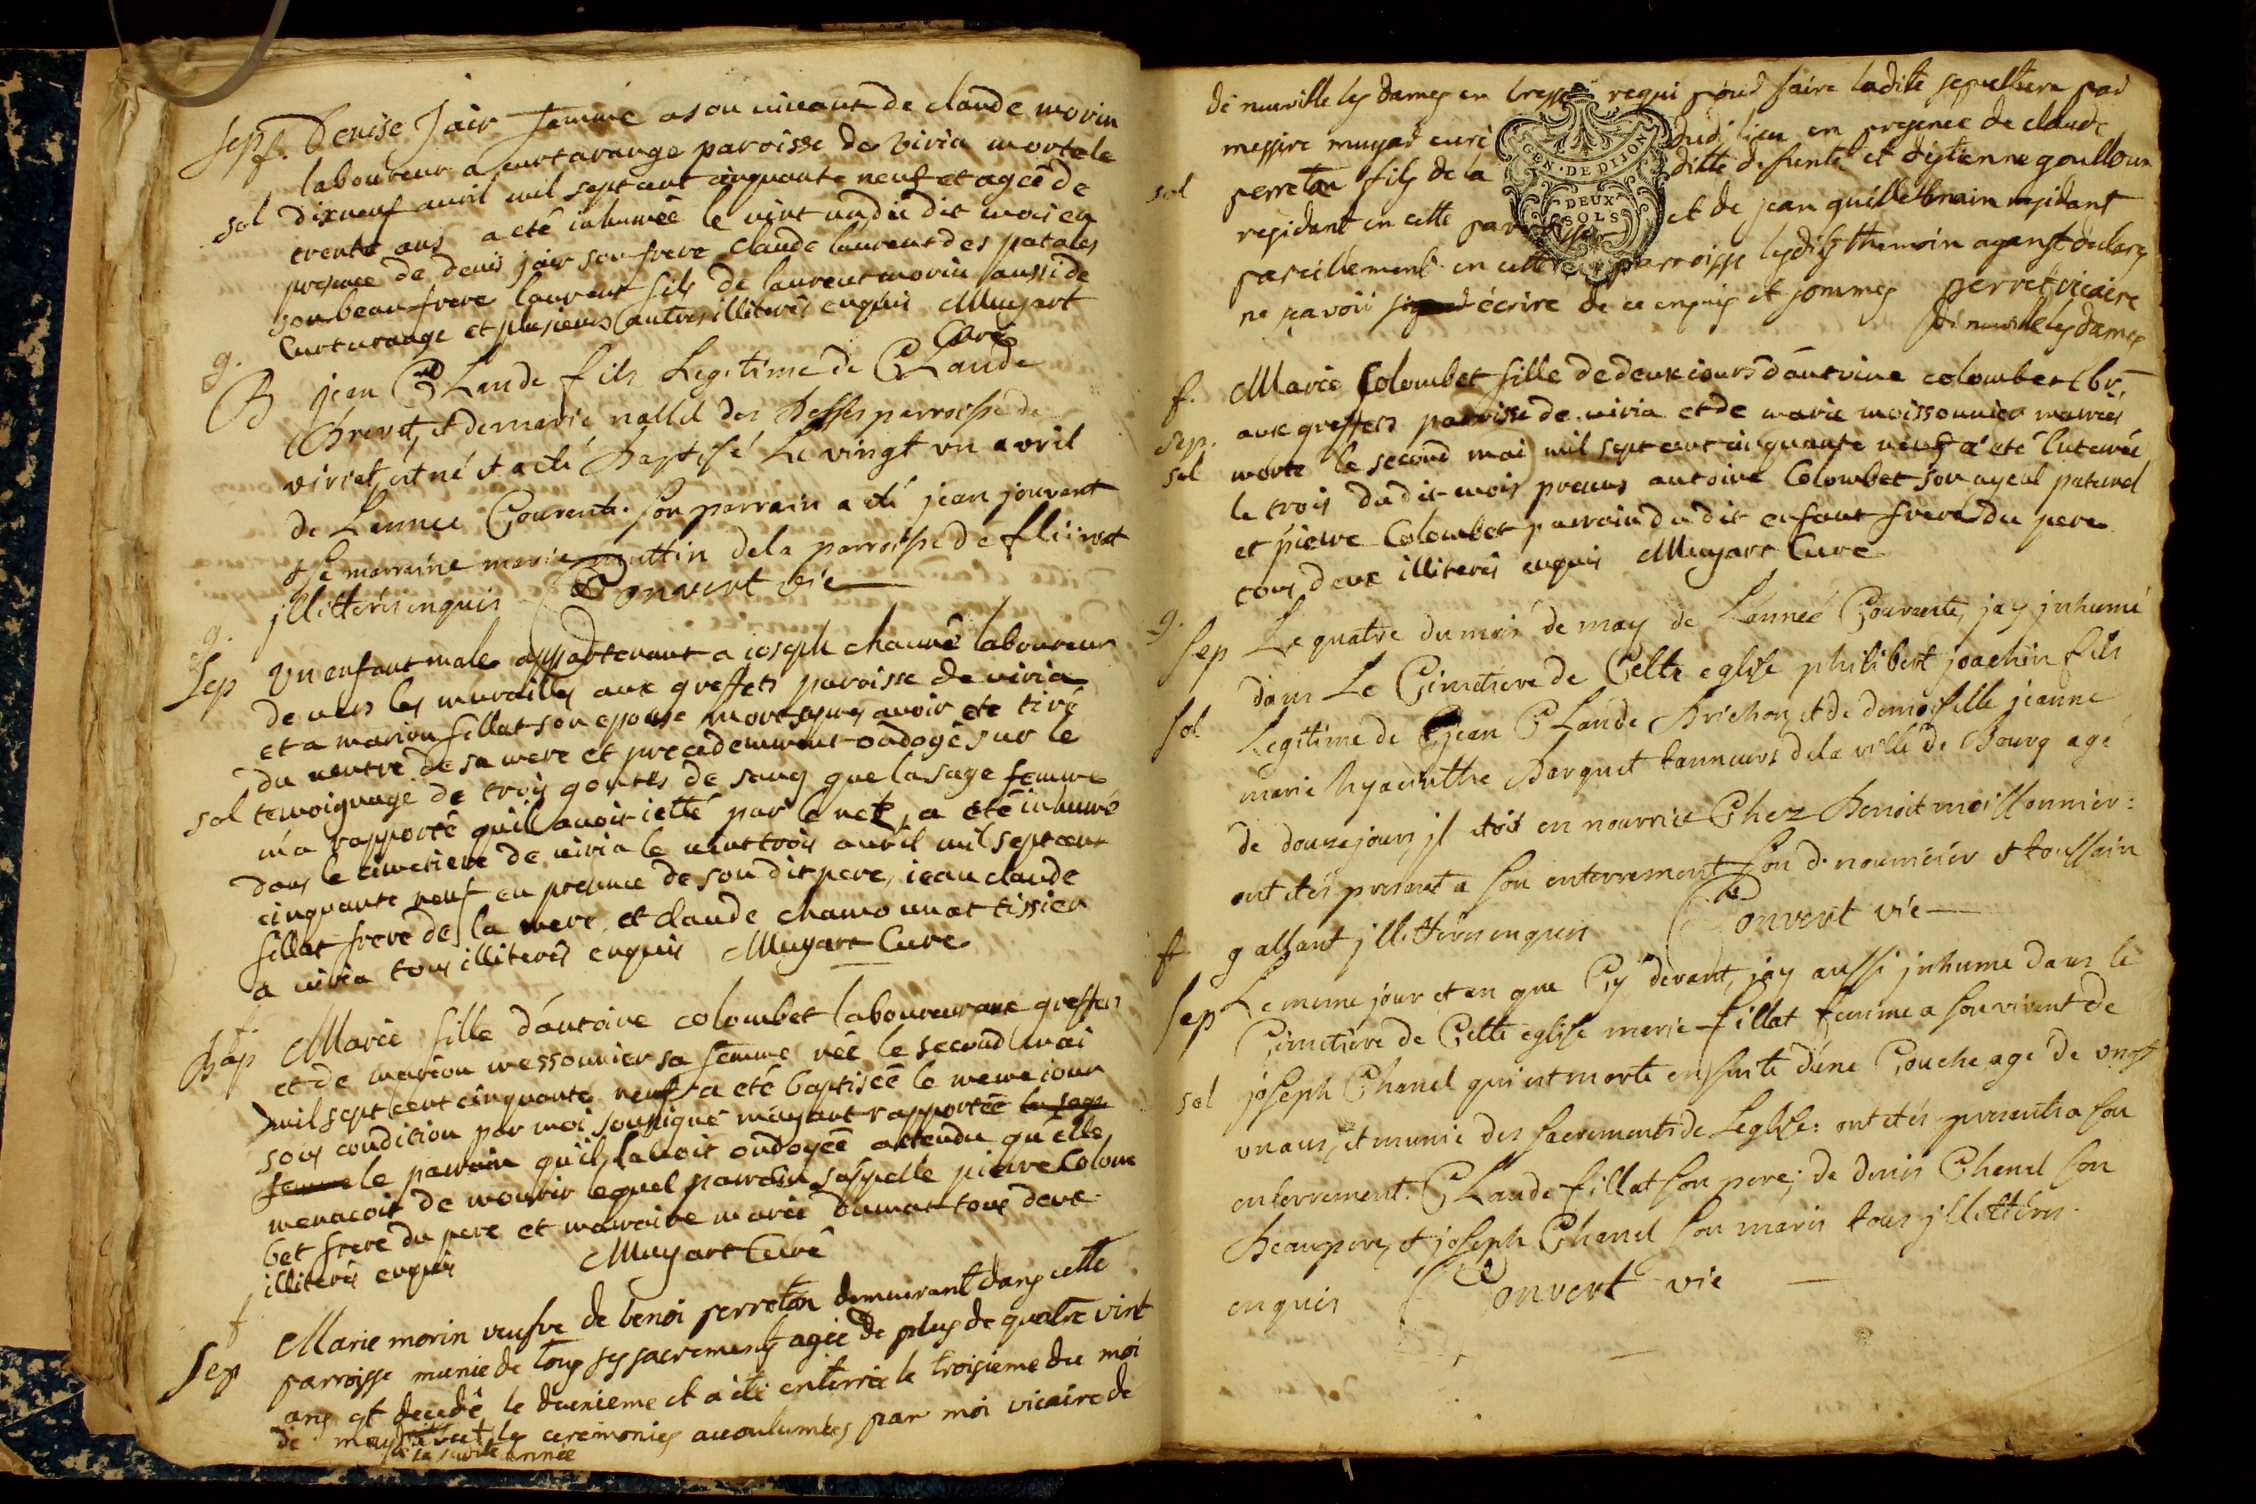 sepf. Denise Jair femme a son vivant de claude morin
laboureur a curtarange paroisse de viria morte le
sol dixneuf avril mil sept cent cinquante neuf et ageê de
trente ans a etê inhumêê le vint un du dit mois en
presence de denis jair son frere claude laurent des patales
son beau frere laurent fils de laurent morin aussi de
Curtarange et plusieurs autres illiterês enquis Muyart
Curê
g.
B jean CLaude fils Legitime de CLaude
Brevet, et de marie nallet des Besses parroisse de
viriat, est né et a eté Baptisé Le vingt un avril
de Lannee Courente. son parrain a eté jean jouvent
et sa marraine marie muttin dela parroisse de fliriat
jllitterés enquis Convert vie
g.
Sep Un enfant male appartenant a ioseph chanel laboureur
de vers les murailles aux greffets paroisse de viria
et a marion fillat son epouse mort apres avoir ete tirê
du ventre de sa mere et precedemment ondogê sur le
sol temoignage de trois goutes de sang que la sage femme
m'a rapportê quil avoit iettê par le nez, a etê inhumê
dans le cimetiere de viria le vint trois avril mil sept cent
cinquante neuf en presence de son dit pere, iean claude
fillat frere de la mere, et claude chamounat tissier
a viria tous illiterês enquis Muyart Cure
f.
Bap Marie fille d'antoine colombet laboureur aux greffets
et de marion messonnier sa femme nêê le second mai
mil sept cent cinquante neuf a etê baptisêê le meme iour
sous condition par moi soussignê m'ayant rapportêê la sage
femme le parrain qu'il lavoit ondoyêê attendu qu'elle
menacoit de mourir lequel parrain sappelle pierre Colom
bet frere du pere et marraine marie Damat tous deux
illiterês enquis Muyart Curê
f
Sep Marie morin veufve de benoi perretan demeurant dans cette
parroisse munie de tous ses sacrements agée de plus de quatre vint
ans est decedê le deuxieme et a eté enterrée le troisieme du moi
de may avec les ceremonies accoutumées par moi vicaire de
de la susdite année
de neuville les dames en bresse requi pour faire ladite sepulture par
messire muyar curé dudi lieu en presence de claude
sol perretan fils de la ditte defunte et d'estienne goulloux
residant en cette parroisse et de jean guillelmain residant
pareillement en cette parroisse lesdits themoin ayanst declaré
ne sçavoir signer écrire de ce enquis et sommes perret vicaire
de neuville les dames
GEN. DE DIJON
DEUX
SOLS
f. Marie Colombet fille de deux iours d'antoine colombet lbr
sep. aux greffets paroisse de viria et de marie moissonnier mariês
sol morte le second mai mil sept cent cinquante neuf a etê enterêê
le trois du dit mois presens antoine Colombet son ayeul paternel
et pierre Colombet parrain du dit enfant frere du pere
tous deux illiterês enquis Muyart Cure
g.
Sep Le quatre du mois de may de Lanneé Courante, jay jnhumé
dans Le Cimetiere de Cette eglise philibert joachin fils
sol Legitime de jean CLaude Brichon et de demoiselle jeanne
marie hyacinthe Barquet tanneurs dela ville de Bourg agé
de douze jours, jl etoit en nourrice Chez Benoit moissonnier:
ont etés present a son enterrement son d. nourricier et toussain
galland jllitterés enquis Convert vie
f
Sep Le meme jour et an que Cy devant, jay aussi jnhume dans le
Cimetiere de Cette eglise marie fillat femme a son vivent de
sol joseph Chanel qui est morte en suite d'une Couche age de vingt
un ans, et munie des sacrements de Leglise: ont etés presents a son
enterrement. CLaude fillat son pere; de denis Chanel son
Beaupere, et joseph Chanel son maris tous jllitterés
enquis Convert vie